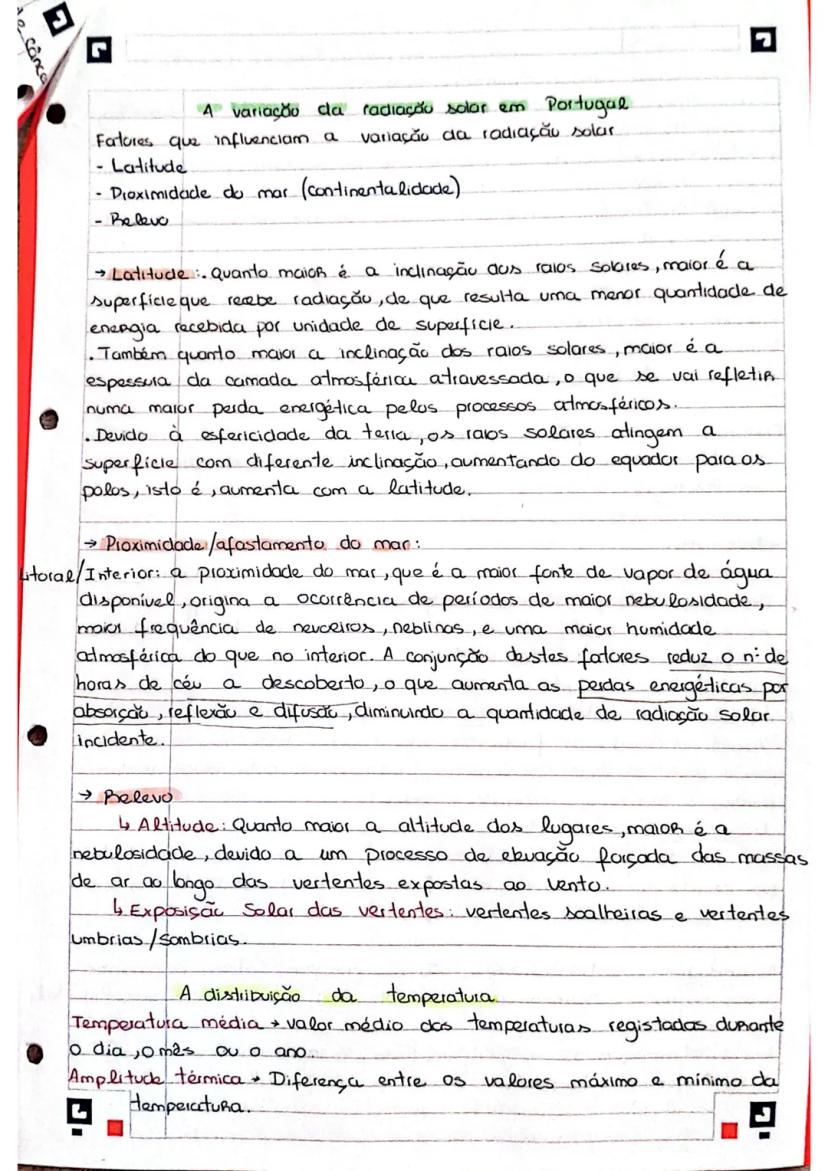 A variação da radiação solar em Portugal
Fatores que influenciam a variação da radiação solar
- Latitude
- Proximidade do mar (continentalidade)
- Relevo
→ Latitude: . Quanto maior é a inclinação dos raios solares, maior é a
superfície que recebe radiação, de que resulta uma menor quantidade de
energia recebida por unidade de superfície.
. Também quanto maior a inclinação dos raios solares, maior é a
espessura da camada atmosférica atravessada, o que se vai refletir
numa maior perda energética pelos processos atmosféricos.
. Devido à esfericidade da terra, os raios solares atingem a
superfície com diferente inclinação, aumentando do equador para os
polos, isto é, aumenta com a latitude.
→ Proximidade/afastamento do mar:
Litoral/Interior: a proximidade do mar, que é a maior fonte de vapor de água
disponível, origina a ocorrência de períodos de maior nebulosidade,
maior frequência de nevoeiros, neblinas, e uma maior humidade
atmosférica do que no interior. A conjunção destes fatores reduz o n: de
horas de céu a descoberto, o que aumenta as perdas energéticas por
absorção, reflexão e difusão, diminuindo a quantidade de radiação solar
incidente.
→ Relevo
↳ Altitude: Quanto maior a altitude dos lugares, maior é a
nebulosidade, devido a um processo de elevação forçada das massas
de ar ao longo das vertentes expostas ao vento.
↳ Exposição Solar das vertentes: vertentes soalheiras e vertentes
umbrias/sombrias.
A distribuição da temperatura
Temperatura média → valor médio das temperaturas registadas durante
o dia, o mês ou o ano.
Amplitude térmica → Diferença entre os valores máximo e mínimo da
temperatura.